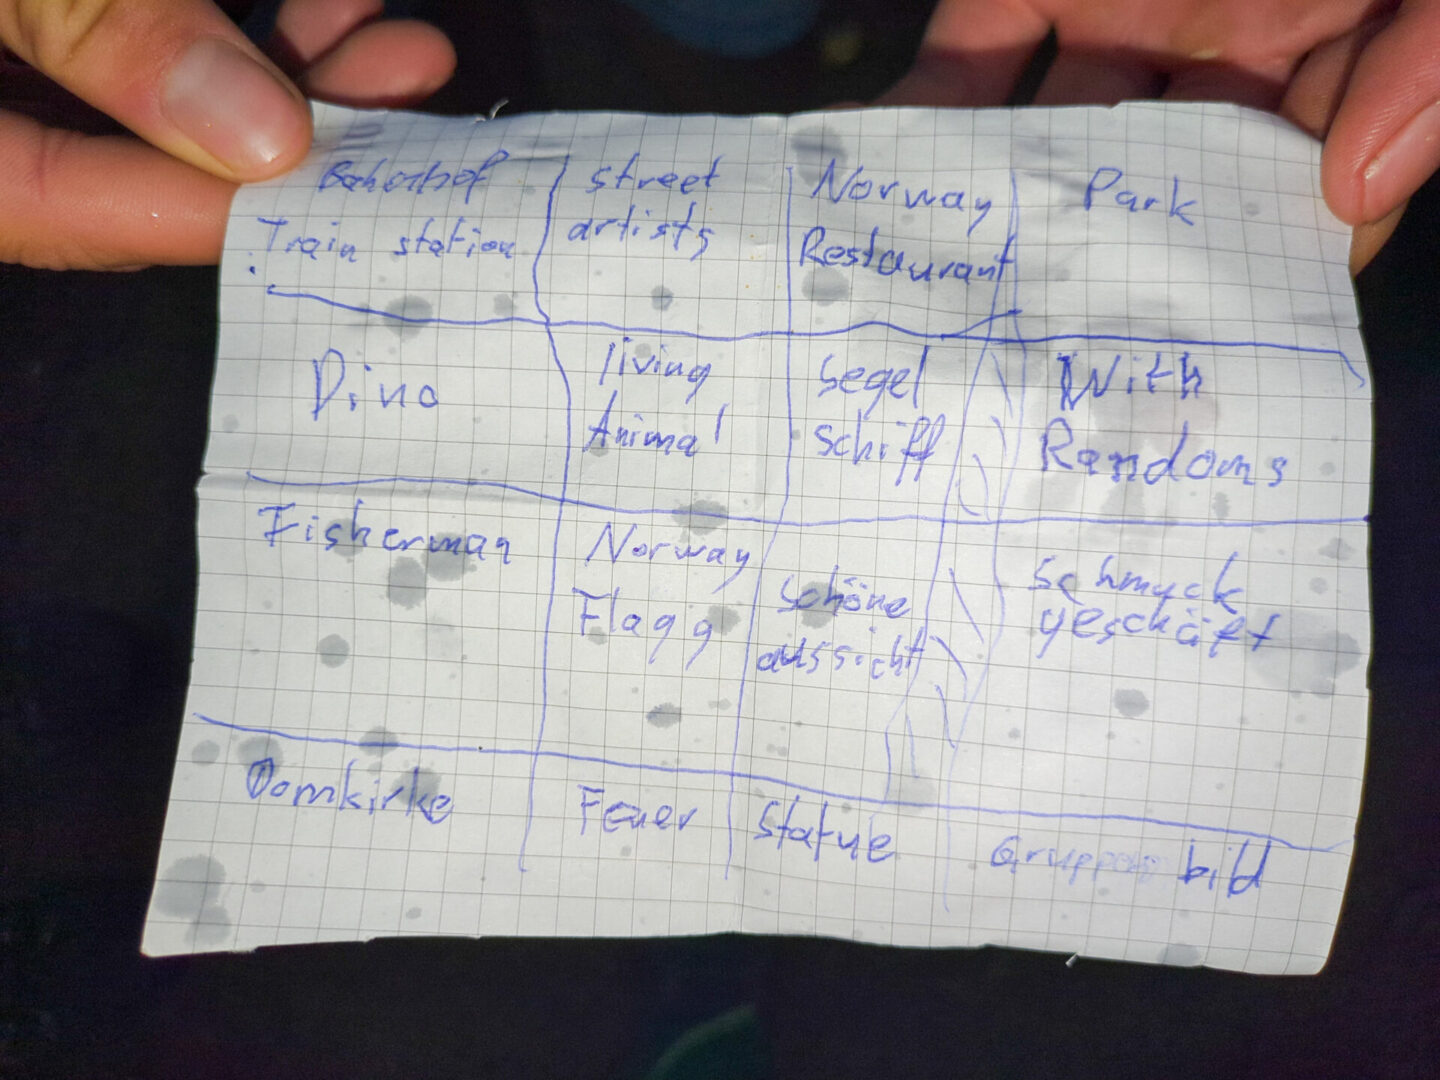 Bahnhof
Train station
street
artists
Norway
Restaurant
Park
Dino
living
Animal
Segel
Schiff
With
Randoms
Fisherman
Norway
Flagg
schöne
aussicht
Schmuck
geschäft
Domkirke
Feuer
Statue
Gruppen bild